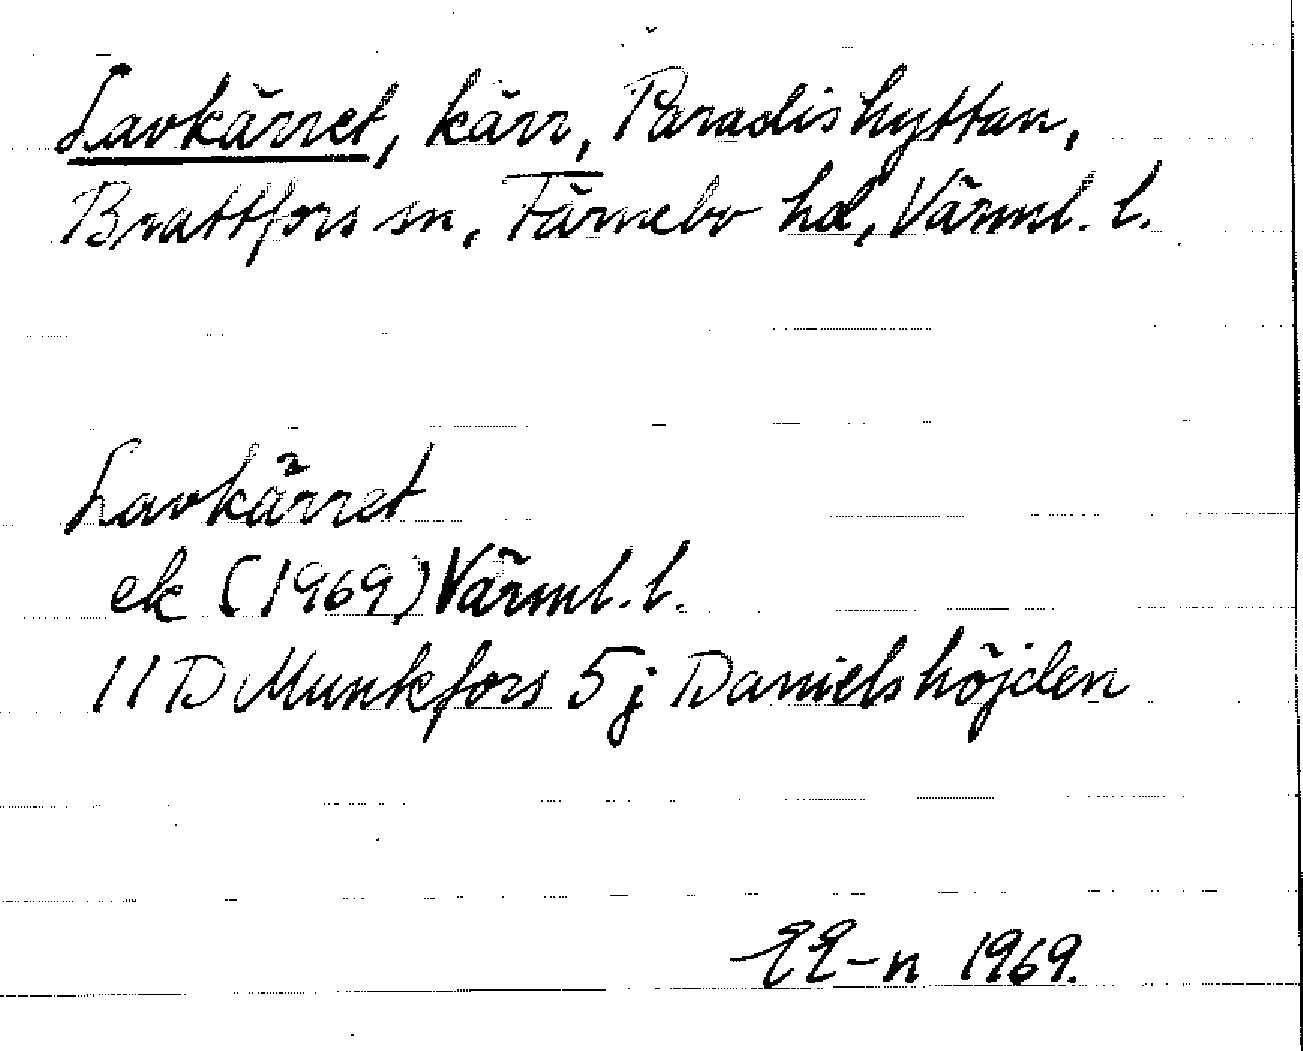 Lavkärret, kärr, Paradishyttan,
Brattfors sn, Färnebo hd, Värml. l.
Lavkärret
ek (1969) Värml. l.
11 D Munkfors 5 j Danielshöjden
EE-n 1969.